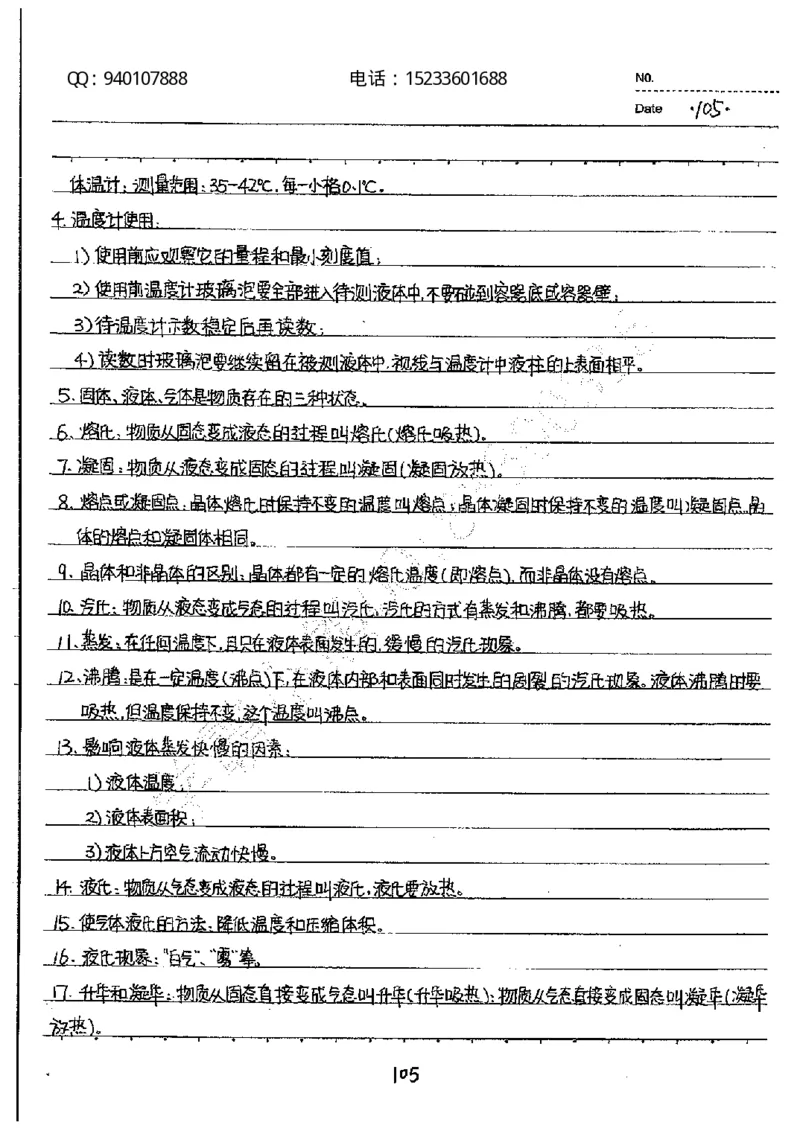 QQ：940107888 电话：15233601688 NO.
Date ·105·
体温计：测量范围：35-42℃，每一小格0.1℃。
4. 温度计使用：
1) 使用前应观察它的量程和最小刻度值；
2) 使用前温度计玻璃泡要全部进入待测液体中，不要碰到容器底或容器壁；
3) 待温度计示数稳定后再读数；
4) 读数时玻璃泡要继续留在被测液体中，视线与温度计中液柱的上表面相平。
5. 固体、液体、气体是物质存在的三种状态。
6. 熔化：物质从固态变成液态的过程叫熔化(熔化吸热)。
7. 凝固：物质从液态变成固态的过程叫凝固(凝固放热)。
8. 熔点或凝固点：晶体熔化时保持不变的温度叫熔点；晶体凝固时保持不变的温度叫凝固点。晶
体的熔点和凝固体相同。
9. 晶体和非晶体的区别：晶体都有一定的熔化温度(即熔点)，而非晶体没有熔点。
10. 汽化：物质从液态变成气态的过程叫汽化，汽化的方式有蒸发和沸腾，都要吸热。
11. 蒸发：在任何温度下，且只在液体表面发生的，缓慢的汽化现象。
12. 沸腾：是在一定温度(沸点)下，在液体内部和表面同时发生的剧裂的汽化现象。液体沸腾时要
吸热，但温度保持不变，这个温度叫沸点。
13. 影响液体蒸发快慢的因素：
1) 液体温度；
2) 液体表面积；
3) 液体上方空气流动快慢。
14. 液化：物质从气态变成液态的过程叫液化，液化要放热。
15. 使气体液化的方法：降低温度和压缩体积。
16. 液化现象："白气"、"雾"等。
17. 升华和凝华：物质从固态直接变成气态叫升华(升华吸热)；物质从气态直接变成固态叫凝华(凝华
放热)。
105